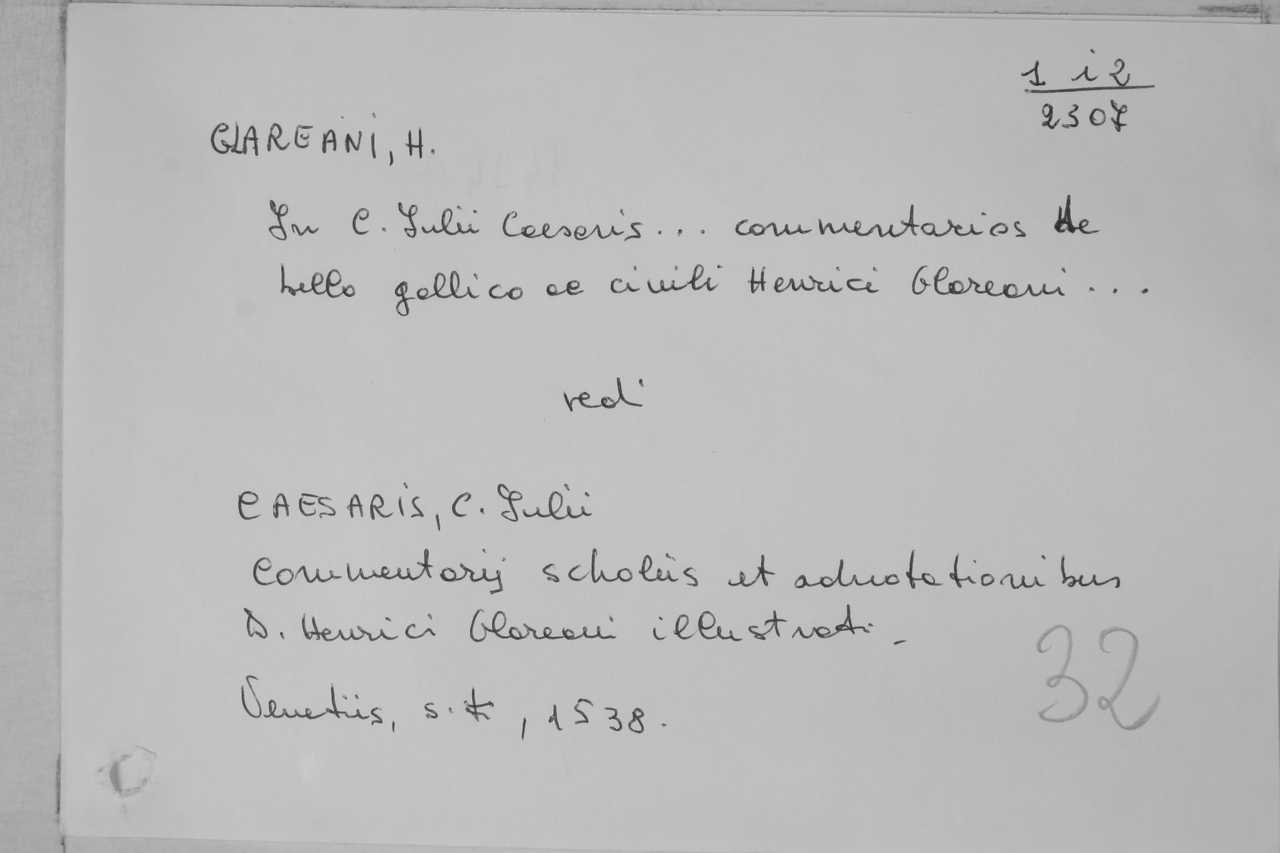 1 i 2
2307
GLAREANI, H.
In C. Julii Caesaris... commentarios de
bello gallico ac civili Henrici Glareani...
vedi
CAESARIS, C. Julii
Commentarij scholiis et adnotationibus
D. Henrici Glareani illustrati.
Venetiis, s.t., 1538.
32